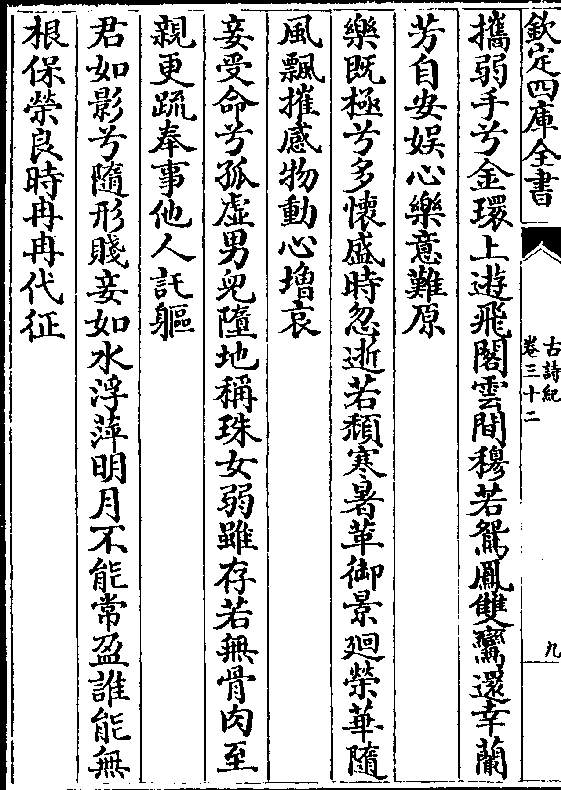 欽定四庫全書
古詩紀
卷三十二
九
攜弱手兮金環上遊飛閣雲間穆若鴛鳳雙鸞還幸蘭
芳自安娛心樂意難原
樂既極兮多懷盛時忽逝若頹寒暑革御景廻榮華隨
風飄摧感物動心增哀
妾受命兮孤虛男兒墮地稱珠女弱雖存若無骨肉至
親更疏奉事他人託軀
君如影兮隨形賤妾如水浮萍明月不能常盈誰能無
根保榮良時冉冉代征